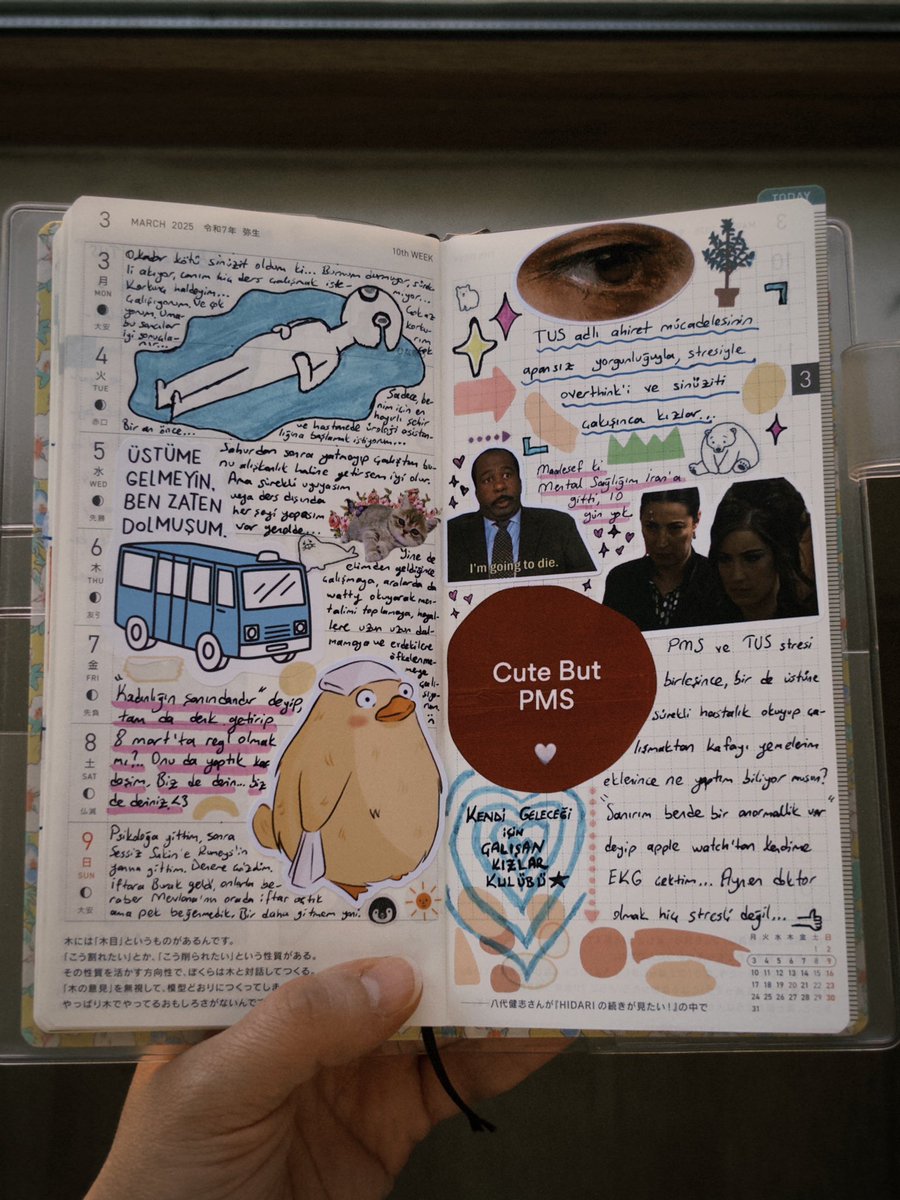 3 MARCH 2025 令和7年 弥生
10th WEEK
3
月
MON
大安
O kadar kötü sinüzit oldum ki... Burnum durmuyor, sürek
li akıyor, canım hiç ders çalışmak iste-
miyor...
Korkunç haldeyim...
Çok az
Çalışıyorum. Ve çok
yorum, Uma-
bu sancılar
4
火
TUE
赤口
Sadece, be-
nim için en
hayırlı şehir
ve hastanede üroloji asistan-
lığına başlamak istiyorum...
Bir an önce...
5
水
WED
先勝
ÜSTÜME
GELMEYİN,
BEN ZATEN
DOLMUŞUM.
Sahurdan sonra yatmayıp çalıştım bu-
nu alışkanlık haline getirsem iyi olur.
Ama sürekli uyuyasım
veya ders dışında
her şeyi yapasım
var yerelde...
6
木
THU
友引
Yine de
elimden geldiğince
çalışmaya, aralarda da
watty okuyarak men-
talimi toplamaya, hayal-
lere uzun uzun dal-
mamaya ve erdekilere
öfkelenme-
meye
çalı-
şıyo-
7
金
FRI
先負
"Kadınlığın şanındandır" deyip,
tam da denk getirip
8 mart'ta regl olmak
mı?... Onu da yaptık kar
daşım. Biz de derin... biz
de deriniz <3
8
土
SAT
仏滅
9
日
SUN
大安
Psikoloğa gittim, sonra
Sessiz Sakin'e Rumeys'in
yanına gittim. Deneme çözdüm.
iftara Burak geldi, onlarla be-
raber Mevlana'nın orada iftar açtık
ama pek beğenmedik. Bir daha gitmem yani.
木には「木目」というものがあるんです。
「こう割れたい」とか、「こう削られたい」という性質がある。
その性質を活かす方向性で、ぼくらは木と対話してつくる。
「木の意見」を無視して、模型どおりにつくってしま
やっぱり木でやってるおもしろさがないんで
TODAY
3
TUS adlı ahiret mücadelesinin
apansız yorgunluğuyla, stresiyle
overthink'i ve sinüziti
çakışınca kızlar...
Maalesef ki
Mental Sağlığım İran'a
gitti, 10
gün yok
I'm going to die.
Cute But
PMS
PMS ve TUS stresi
birleşince, bir de üstüne
sürekli hastalık okuyup ça-
lışmaktan kafayı yemelerim
eklenince ne yaptım biliyor musun?
"Sanırım bende bir anormallik var"
deyip apple watch'tan kendime
EKG çektim... Aynen doktor
olmak hiç stresli değil...
KENDİ GELECEĞİ
İÇİN
ÇALIŞAN
KIZLAR
KULÜBÜ★
月 火 水 木 金 土 日
1 2
3 4 5 6 7 8 9
10 11 12 13 14 15 16
17 18 19 20 21 22 23
24 25 26 27 28 29 30
31
——八代健志さんが『HIDARIの続きが見たい！』の中で